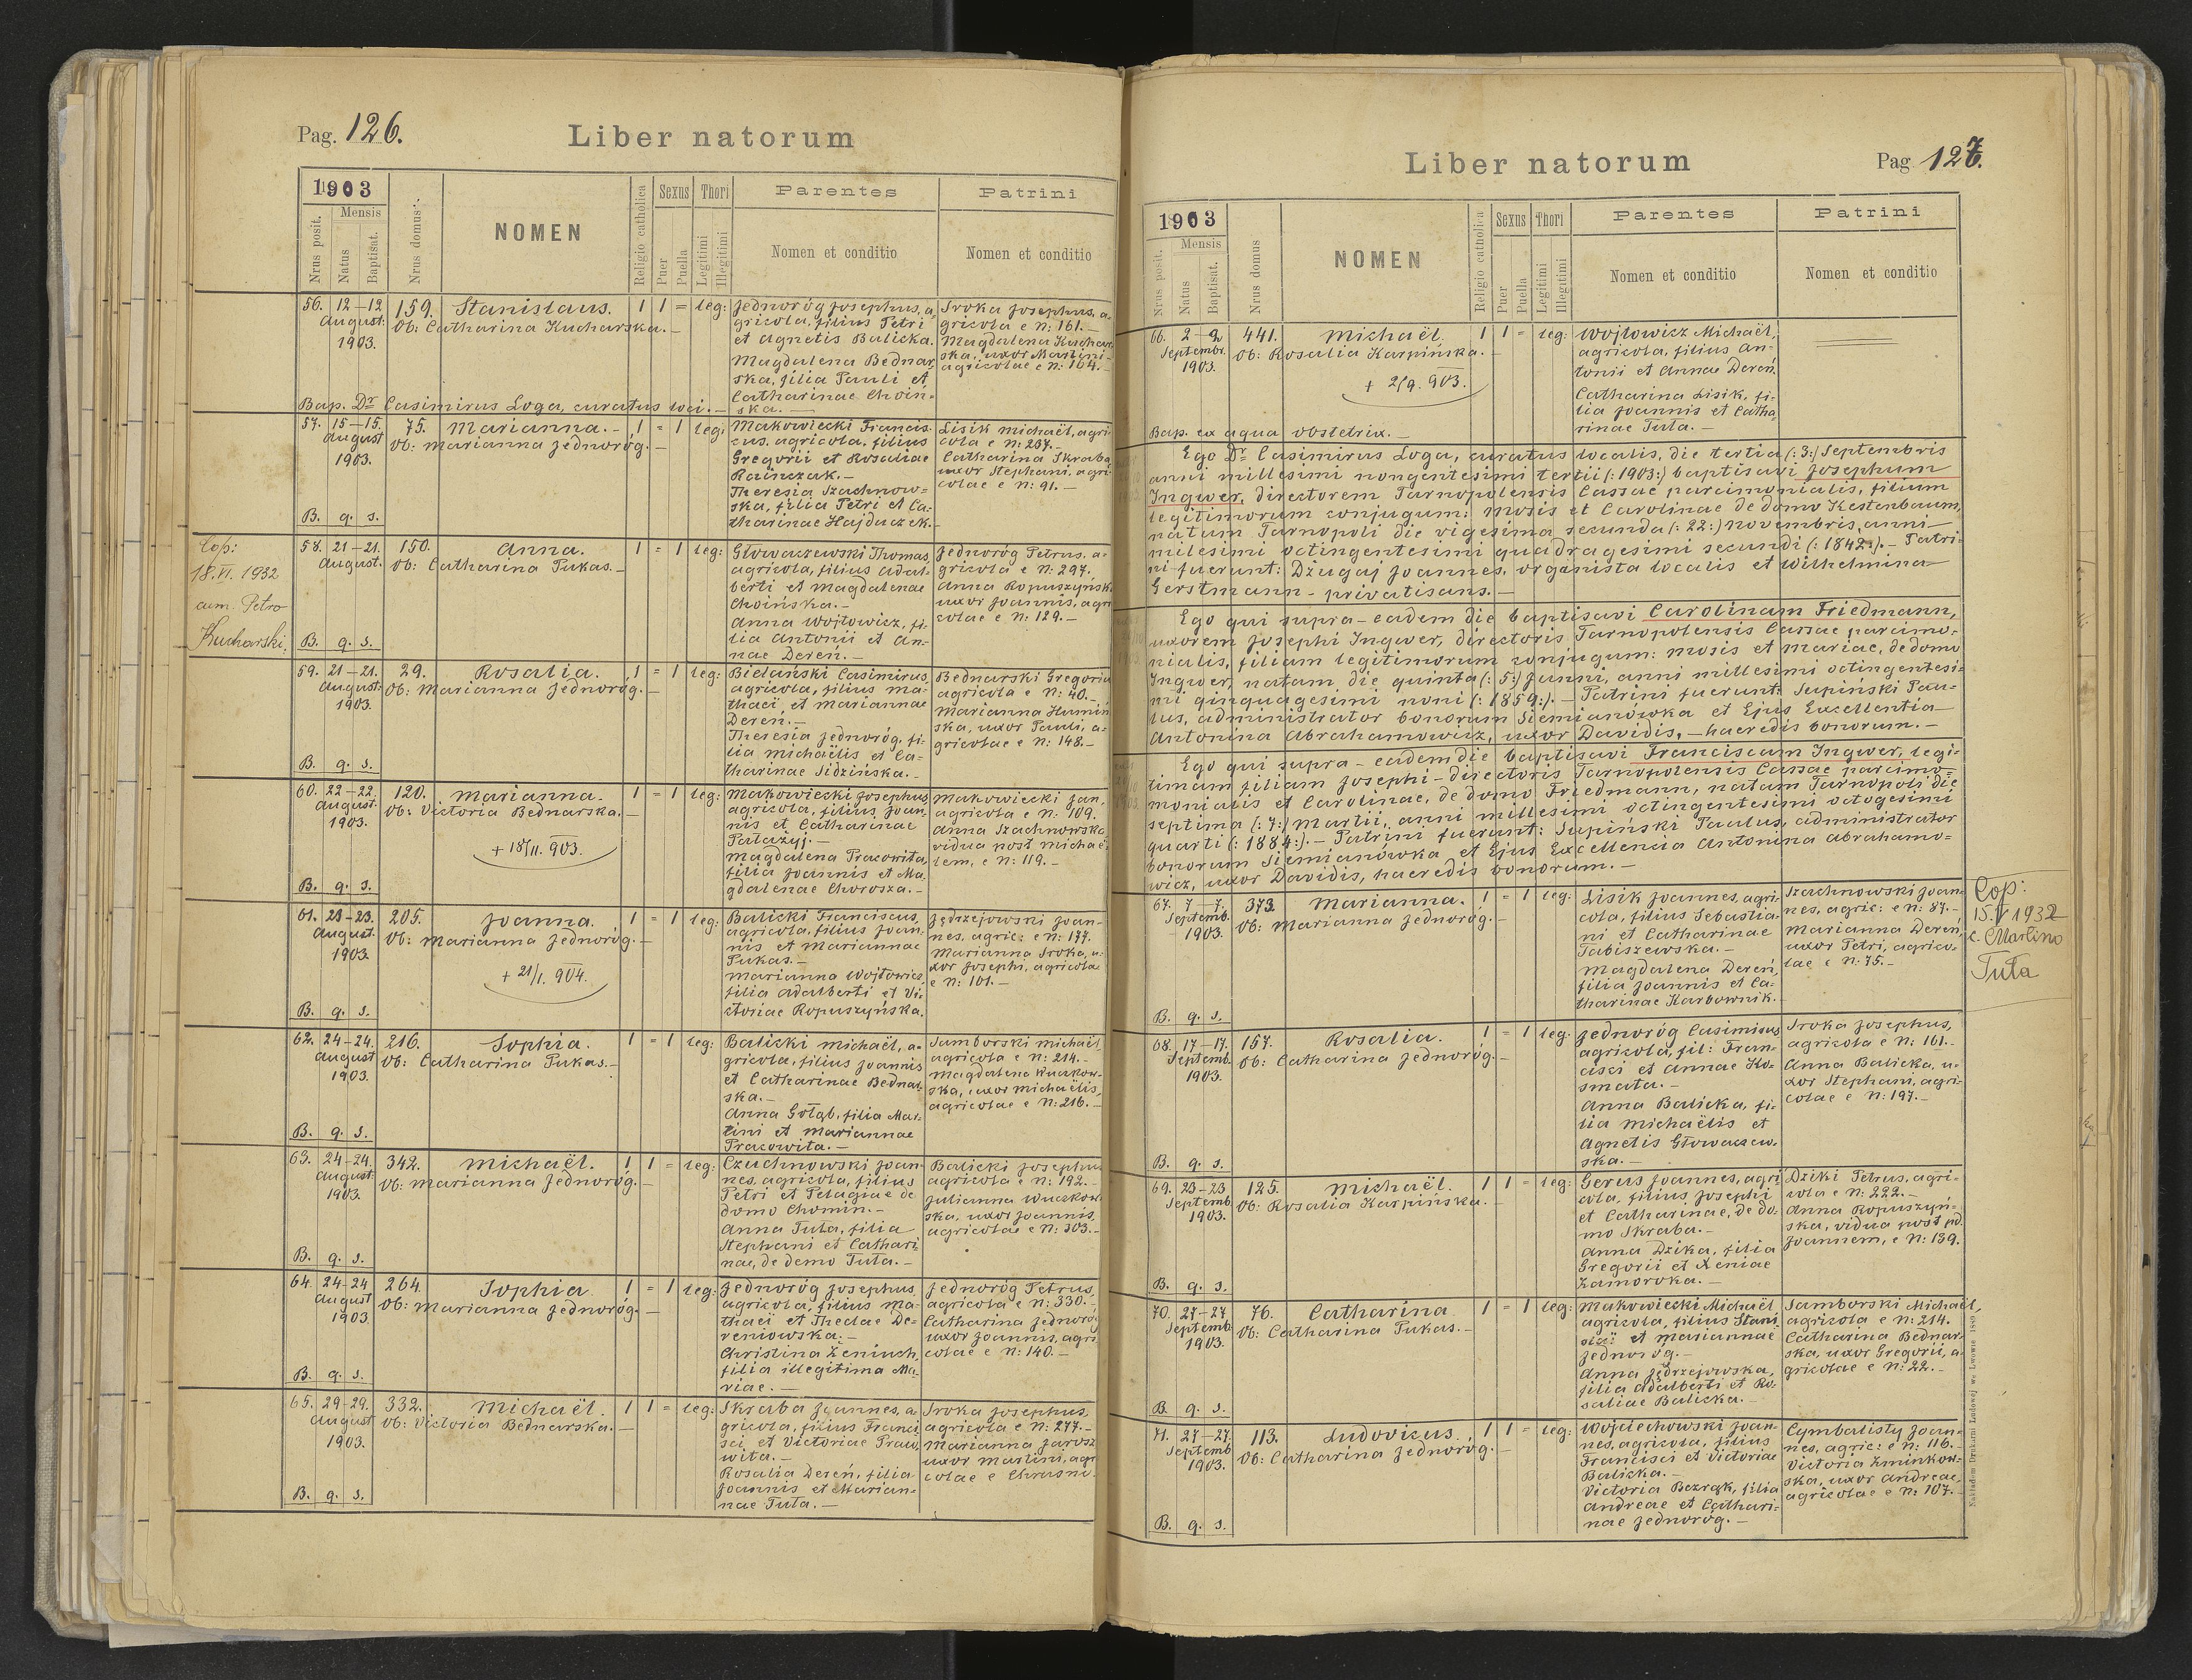 Pag. 126.
Liber natorum
1903
Nrus posit.
Mensis
Natus
Baptisat.
Nrus domus
NOMEN
Religio catholica
Sexus
Puer
Puella
Thori
Legitimi
Illegitimi
Parentes
Nomen et conditio
Patrini
Nomen et conditio
56. 12–12 August: 1903.
159. Stanislaus. 1 1 = leg:
Ob: Catharina Kucharska. –
Jednoróg Josephus, a-
gricola, filius Petri
et Agnetis Balicka.
Magdalena Bednar-
ska, filia Pauli et
Catharinae Choiń-
ska. –
Sroka Josephus, a-
gricola e N: 161. –
Magdalena Kuchar-
ska, uxor Martini –
agricolae e N: 164. –
Bap. Dr Casimirus Loga, curatus loci. –
57. 15–15. August 1903.
75. Marianna. – 1 = 1 leg:
Ob: Marianna Jednoróg. –
Makowiecki Francis-
cus, agricola, filius
Gregorii et Rosaliae
Rainczak. –
Theresia Szachnow=
ska, filia Petri et Ca-
tharinae Hajduczek. –
Lisik Michaël, agri-
cola e N: 237. –
Catharina Skraba,
uxor Stephani, agri-
colae e N: 91. –
B. q. s.
Cop:
18.VI. 1932
cum Petro
Kucharski;
58. 21–21. August.
150. Anna. 1 = 1 leg:
Ob: Catharina Pukas. –
Głowaczewski Thomas,
agricola, filius Adal-
berti et Magdalenae
Choińska. –
Anna Wojtowicz, fi-
lia Antonii et An-
nae Dereń. –
Jednoróg Petrus, a-
gricola e N: 297.
Anna Ropuszyńsk
uxor Joannis, agri
colae e N: 129. –
B. q. s.
59. 21–21. August: 1903.
29. Rosalia. 1 = 1 leg:
Ob: Marianna Jednoróg. –
Bielański Casimirus,
agricola, filius Ma-
thaei, et Mariannae
Dereń. –
Theresia Jednoróg, fi-
lia Michaëlis et Ca-
tharinae Sidzińska. –
Bednarski Gregorius
agricola e N: 40. –
Marianna Humiń
ska, uxor Pauli, a-
gricolae e N: 148. –
B. q. s.
60. 22–22. August. 1903.
120. Marianna. 1 = 1 leg:
Ob: Victoria Bednarska. –
+ 18/II. 903.
Makowiecki Josephus,
agricola, filius Joan-
nis et Catharinae
Patazij. –
Magdalena Pracowita,
filia Joannis et Ma-
gdalenae Chorosza. –
Makowiecki Jan,
agricola e N: 109.
Anna Szachnowska,
vidua post Michaë-
lem, e N: 119. –
B. q. s.
61. 23–23. August. 1903.
205. Joanna. 1 = 1 leg:
Ob: Marianna Jednoróg. –
+ 21/I. 904.
Balicki Franciscus,
agricola, filius Joan-
nis et Mariannae
Pukas. –
Marianna Wojtowicz,
filia Adalberti et Vi-
ctoriae Ropuszyńska.
Jędrzejowski Joan-
nes, agric: e N: 177.
Marianna Sroka, u-
xor Josephi, agricolae
e N: 101. –
B. q. s.
62. 24–24. August 1903.
216. Sophia. 1 = 1 leg:
Ob: Catharina Pukas. –
Balicki Michaël, a-
gricola, filius Joannis
et Catharinae Bednar-
ska. –
Anna Gołąb, filia Mar-
tini et Mariannae
Pracowita. –
Samborski Michaël
agricola e N: 214. –
Magdalena Kuczkow-
ska, uxor Michaëlis,
agricolae e N: 216. –
B. q. s.
63. 24–24. August: 1903.
342. Michaël. 1 1 = leg:
Ob: Marianna Jednoróg. –
Czuchnowski Joan-
nes, agricola, filius
Petri et Pelagiae de
domo Chomin. –
Anna Tuta, filia
Stephani et Cathari-
nae, de demo Tuta. –
Balicki Josephus
agricola e N: 192. –
Julianna Wuczkow
ska, uxor Joannis,
agricolae e N: 303. –
B. q. s.
64. 24–24 August 1903
264. Sophia. 1 = 1 leg:
Ob: Marianna Jednoróg. –
Jednoróg Josephus,
agricola, filius Ma-
thaei et Theclae De-
reniowska. –
Christina Zeniuch,
filia illegitima Ma-
riae. –
Jednoróg Petrus,
agricola e N: 330. –
Catharina Jednoróg
uxor Joannis, agri
colae e N: 140. –
B. q. s.
65. 29–29. August 1903.
332. Michaël. 1 1 = leg:
Ob: Victoria Bednarska. –
Skraba Joannes, a-
gricola, filius Franci-
sci et Victoriae Praco-
wita. –
Rosalia Dereń, filia
Joannis et Marian-
nae Tuta. –
Sroka Josephus,
agricola e N: 277. –
Marianna Jarosz
uxor Martini, agri
colae e Chrusno.
B. q. s.
Liber natorum
Pag. 127.
1903
Nrus posit.
Mensis
Natus
Baptisat.
Nrus domus
NOMEN
Religio catholica
Sexus
Puer
Puella
Thori
Legitimi
Illegitimi
Parentes
Nomen et conditio
Patrini
Nomen et conditio
66. 2–2 Septembr. 1903.
441. Michaël. 1 1 = leg:
Ob: Rosalia Karpińska. –
+ 2/9. 903.
Wojtowicz Michaël,
agricola, filius An-
tonii et Annae Dereń.
Catharina Lisik, fi-
lia Joannis et Catha-
rinae Tuta. –
Bap. ex aqua obstetrix. –
Ego Dr Casimirus Loga, curatus localis, die tertia (:3:) Septembris
anni millesimi nongentesimi tertii (:1903:) baptisavi Josephum
Ingwer, directorem Tarnopolensis Cassae parcimonialis, filium
legitimorum conjugum: Mosis et Carolinae de domo Kestenbaum,
natum Tarnopoli die vigesima secunda (:22:) Novembris, anni –
milesimi octingentesimi quadragesimi secundi (:1842:). – Patri-
ni fuerunt: Dżugaj Joannes, organista localis et Wilhelmina –
Gerstmann – privatisans. –
Ego qui supra – eadem die baptisavi Carolinam Friedmann,
uxorem Josephi Ingwer, directoris Tarnopolensis Cassae parcimo-
nialis, filiam legitimorum conjugum: Mosis et Mariae, de domo
Ingwer, natam die quinta (:5:) Junni, anni millesimi octingentesi-
mi qinquagesimi noni (:1859:). – Patrini fuerunt: Supiński Pau-
lus, administrator bonorum Siemianówka et Ejus Excellentia
Antonina Abrahamowicz, uxor Davidis, – haeredis bonorum. –
Ego qui supra – eadem die baptisavi Franciscam Ingwer, legi-
timam filiam Josephi – directoris Tarnopolensis Cassae parcimo-
monialis et Carolinae, de domo Friedmann, natam Tarnopoli die
septima (:7:) Martii, anni millesimi octingentesimi octogesimi
quarti (:1884:). – Patrini fuerunt: Supiński Paulus, administrator
bonorum Siemianówka et Ejus Excellencia Antonina Abrahamo-
wicz, uxor Davidis, haeredis bonorum. –
67. 7–7. Septemb. 1903.
373. Marianna. 1 = 1 leg:
Ob: Marianna Jednoróg. –
Lisik Joannes, agri-
cola, filius Sebastia-
ni et Catharinae
Tabiszewska. –
Magdalena Dereń,
filia Joannis et Ca-
tharinae Karbownik. –
Szachnowski Joan-
nes, agric: e N: 87. –
Marianna Dereń,
uxor Petri, agrico-
lae e N: 75. –
Cop:
15.V 1932
c. Martino
Tuta
B. q. s.
68. 17–17. Septemb. 1903.
157. Rosalia. 1 = 1 leg:
Ob: Catharina Jednoróg. –
Jednoróg Casimirus
agricola, fil: Fran-
cisci et Annae Ko-
smata. –
Anna Balicka, fi-
lia Michaëlis et
Agnetis Głowaczew-
ska. –
Sroka Josephus,
agricola e N: 161. –
Anna Balicka, u-
xor Stephani, agri-
colae e N: 197. –
B. q. s.
69. 23–23 Septemb. 1903.
125. Michaël. 1 1 = leg:
Ob: Rosalia Karpińska. –
Gerus Joannes, agri-
cola, filius Josephi
et Catharinae, de do-
mo Skraba. –
Anna Dzika, filia
Gregorii et Xeniae
Zamoroka. –
Dziki Petrus, agri-
cola e N: 222. –
Anna Ropuszyń-
ska, vidua post pd.
Joannem, e N: 139.
B. q. s.
70. 27–27 Septemb. 1903.
76. Catharina. 1 = 1 leg:
Ob: Catharina Pukas. –
Makowiecki Michaël
agricola, filius Stani-
et Mariannae
Jednoróg. –
Anna Jędrzejowska,
filia Adalberti et Ro-
saliae Balicka. –
Samborski Michaël,
agricola e N: 214.
Catharina Bednar-
ska, uxor Gregorii, a-
gricolae e N: 22. –
B. q. s.
71. 27–27. Septemb 1903.
113. Ludovicus. 1 1 = leg:
Ob: Catharina Jednoróg. –
Wojciechowski Joan-
nes, agricola, filius
Francisci et Victoriae
Balicka. –
Victoria Bezrąk, filia
Andreae et Cathari-
nae Jednoróg. –
Cymbalisty Joan-
nes, agric: e N: 116. –
Victoria Zminkow-
ska, uxor Andreae,
agricolae e N: 107. –
B. q. s.
Nakładem Drukarni Ludowej we Lwowie 1889